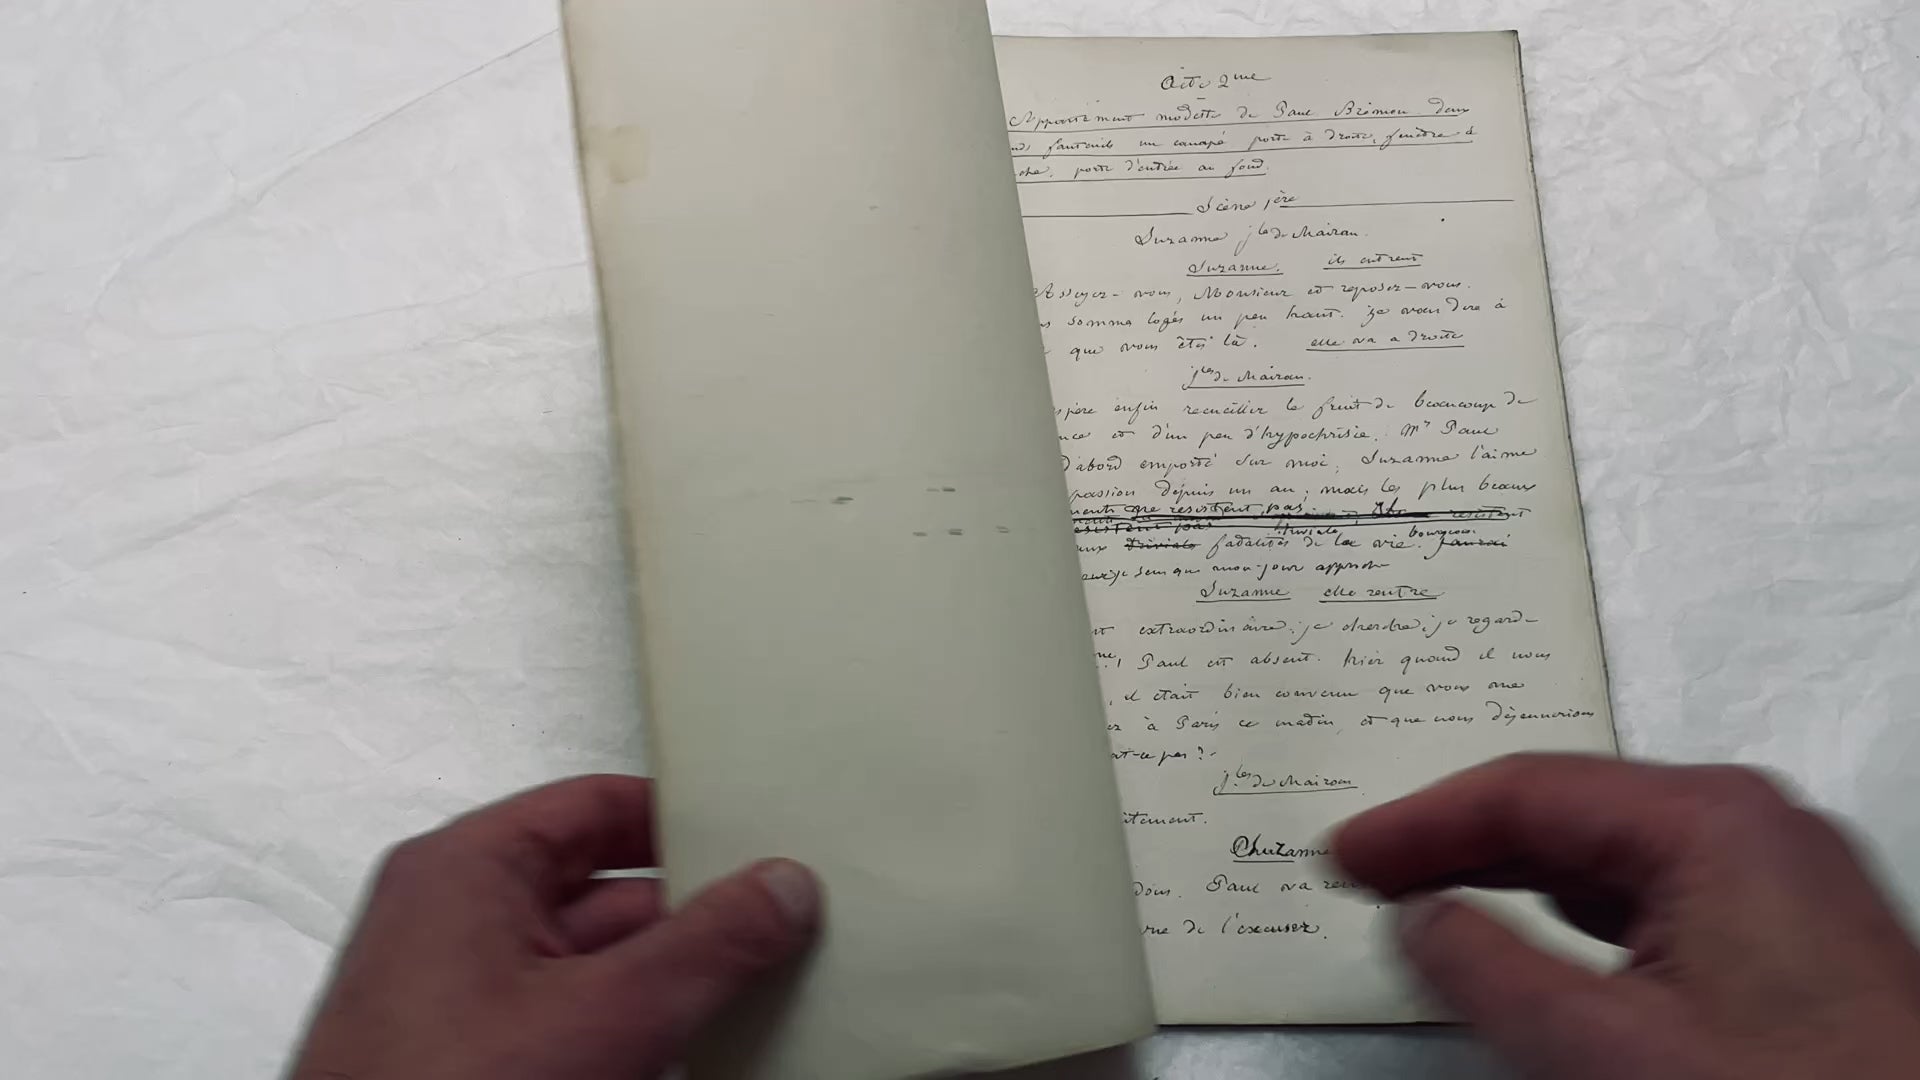 Acte 2me
Appartement modeste de Paul Brémon. Deux
fauteuils un canapé porte à droite, fenêtre à
porte d'entrée au fond.
Scène 1ère
Suzanne jles de Mairan.
Suzanne. ils entrent
Asseyez-vous, Monsieur et reposez-vous.
somme logés un peu haut. je vais dire à
que vous êtes là. elle va a droite
jles de Mairan.
enfin recueillir le fruit de beaucoup de
et d'un peu d'hypochrisie. Mr Paul
d'abord emporté sur moi, Suzanne l'aime
passion depuis un an; mais les plus beaux
ne resistent pas resistent
resistent pas triviales bourgeoise.
triviales fatalités de la vie. J'aurai
je sens que mon jour approche
Suzanne elle rentre
extraordinaire; je cherche, je regarde
Paul est absent. hier quand il nous
, il était bien convenu que vous me
à Paris ce matin, et que nous déjeunerions
-ce pas?
jles de Mairan
Chuzanne
Paul va
de l'excuser.